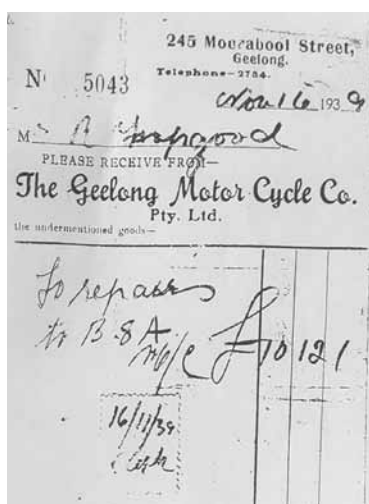 245 Moorabool Street,
Geelong.
Telephone—2784.
Nº 5043
Nov 16 1939
M R
PLEASE RECEIVE FROM—
The Geelong Motor Cycle Co.
Pty. Ltd.
the undermentioned goods—
To repairs
to B S A
M/C £10 12 1
16/11/39